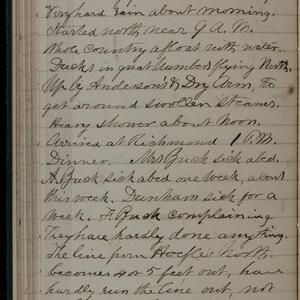 Very hard rain about morning.
Started north near 9 A.M.
Whole country afloat with water.
Ducks in great numbers flying North.
Up by Anderson's & Dry Arm, to
get around swollen steams.
Heavy shower about Noon.
Arrived at Richmond 1 P.M.
Dinner. Mrs Buck sick abed.
A. Buck sick abed one week, about
this week. Dunham sick for a
week. F. Buck complaining.
They have hardly done anything.
The line from Hoefler North.
becomes 4 or 5 feet out, have
hardly run the line out, not